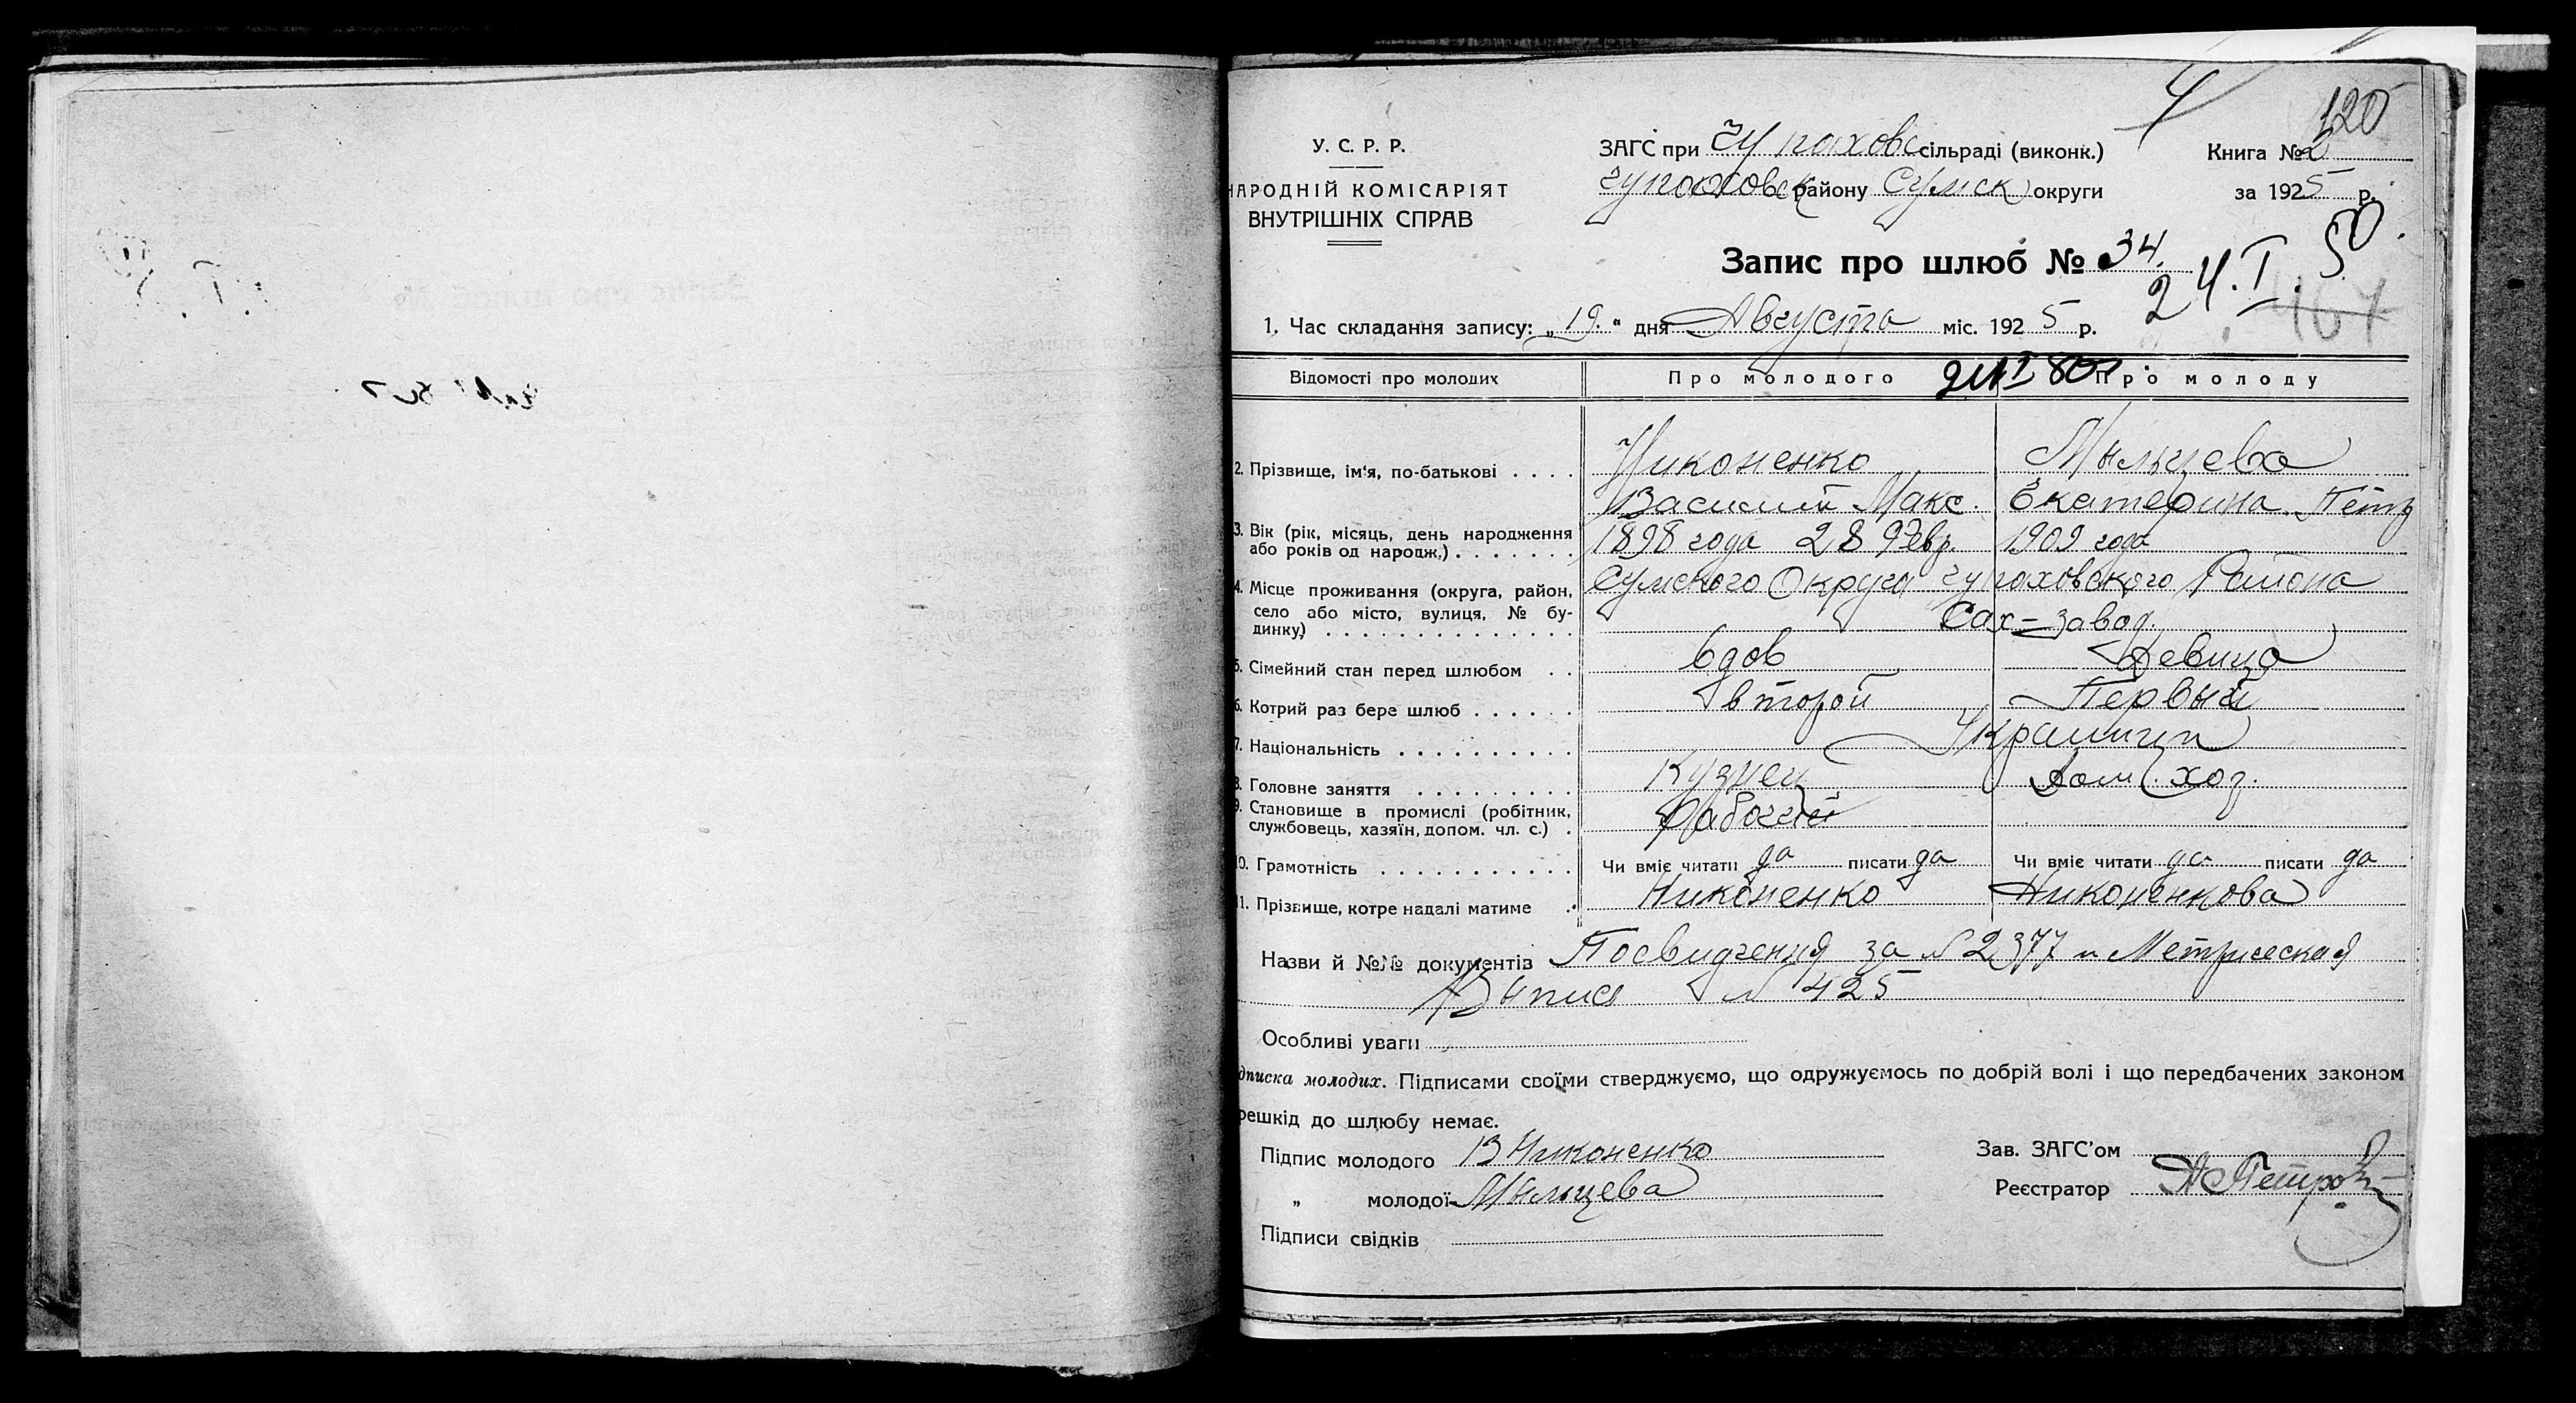 4
120
У. С. Р. Р.
НАРОДНІЙ КОМІСАРІЯТ
ВНУТРІШНІХ СПРАВ
ЗАГС при Чупаховс сільраді (виконк.)
Чупаховск району Сумск округи
Книга № 2
за 1925 р.
Запис про шлюб № 34.
24.I.50
167
1. Час складання запису: „19.“ дня Августа міс. 1925 р.
Відомості про молодих
Про молодого
Про молоду
2. Прізвище, ім'я, по-батькові . . . . Никоненко Мыльцева
Василий Макс. Екатерина Петр
3. Вік (рік, місяць, день народження або років од народж.) . . . . . . . 1898 года 28 Февр. 1909 года
4. Місце проживання (округа, район, село або місто, вулиця, № будинку) . . . . . . . . . . . . . . Сумского Округа Чупаховского Района
Сах-завод.
5. Сімейний стан перед шлюбом . . вдов Девица
6. Котрий раз бере шлюб . . . . . . второй Первый
7. Національність . . . . . . . . . . Украинцы
8. Головне заняття . . . . . . . . . Кузнец Дом. хоз.
9. Становище в промислі (робітник, службовець, хазяїн, допом. чл. с.) . Рабочий
10. Грамотність . . . . . . . . . . . Чи вміє читати да писати да Чи вміє читати да писати да
11. Прізвище, котре надалі матиме . Никоненко Никоненкова
Назви й №№ документів Посвидчения за № 2377 и Метрическая
Выпись № 425
Особливі уваги
дписка молодих. Підписами своїми стверджуємо, що одружуємось по добрій волі і що передбачених законом
решкід до шлюбу немає.
Підпис молодого В Никоненко
„ молодої Мыльцева
Підписи свідків
Зав. ЗАГС'ом
Реєстратор А Петров